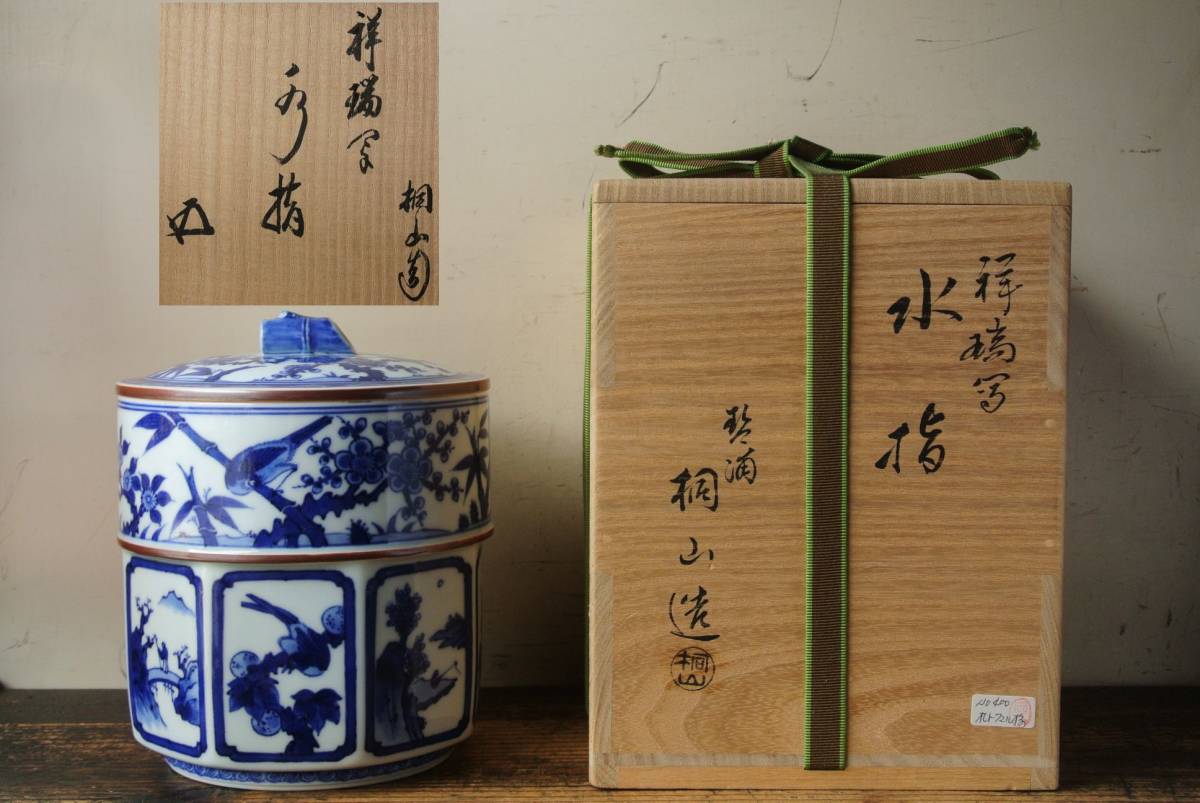 祥瑞写
水指
桐山造
祥瑞写
水指
琴浦
桐山造
桐山
No 400